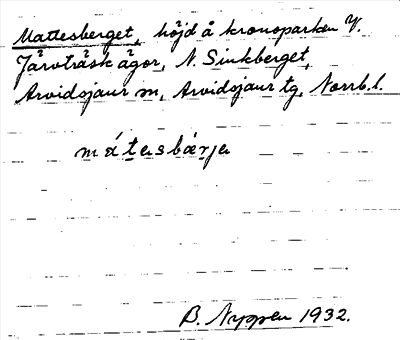 Mattesberget, höjd å kronoparken V.
Järvträsk ägor, N. Sinkberget,
Arvidsjaur sn, Arvidsjaur tg, Norrb. l.
mátesbærje
B. Nyppen 1932.